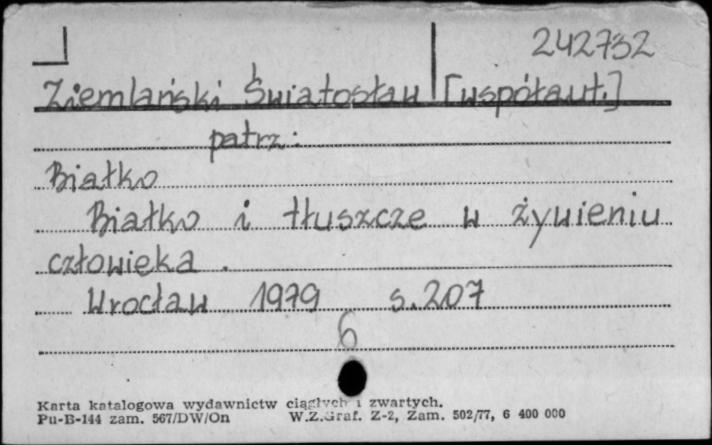 242732
Ziemlański Światosław [współaut.]
patrz:
Białko
Białko i tłuszcze w żywieniu
człowieka.
Wrocław 1979 s. 207
6
Karta katalogowa wydawnictw ciągłych i zwartych.
Pu-B-144 zam. 567/DW/On W.Z.Graf. Z-2, Zam. 502/77, 6 400 000